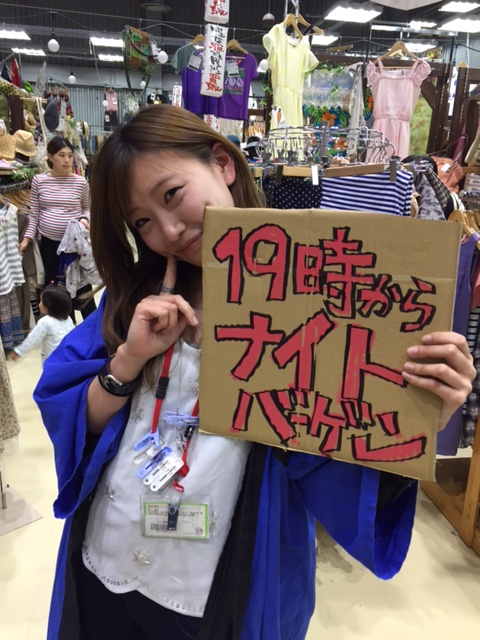 19時から
ナイト
バーゲン